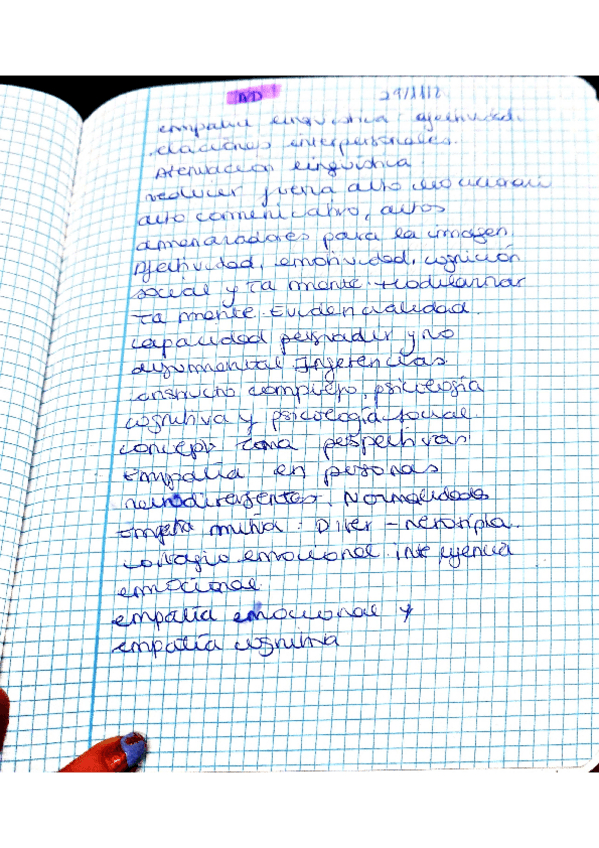 AD 29/11/2
empatia lingüistica afectividad.
relaciones interpersonales.
Atenuacion lingüistica
reducir fuerza alto
acto comunicativo, actos
amenazadores para la imagen
Afectividad, emotividad, cognición
social y Ta mente
Ta mente. Evidencialidad.
capacidad persuadir y no
argumental Ingerencias
constructo complejo, psicología
cognitiva y psicología social.
concept toma perspectivas
Empatía en personas
neurodivergentes. Normalidades
Empatia mutua: Diver -
contagio emocional inteligencia
emocional
empatía emocional y
empatía cognitiva